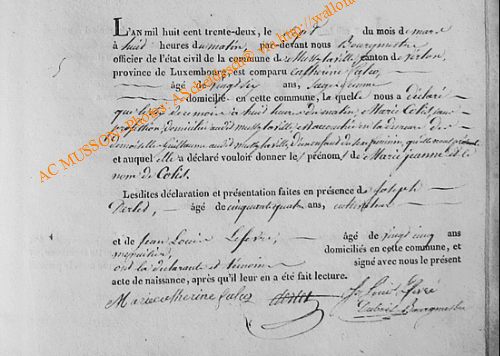 L'AN mil huit cent trente-deux, le vingt du mois de mars
à huit heures du matin, par-devant nous Bourgmestre
officier de l'état civil de la commune de Mussy la ville, canton de Virton,
province de Luxembourg, est comparu Catherine
âgé de vingt six ans, Sage femme
domiciliée en cette commune, la quelle nous a déclaré
que à huit heures du matin, Marie Colit, sans
profession domiciliée audit Mussy la ville, est accouchée en la demeure
Guillaume audit Mussy la ville, d'un enfant du sexe féminin, qu'elle nous présente
et auquel elle a déclaré vouloir donner le prénom de Marie jeanne et le
nom de Colit.
Lesdites déclaration et présentation faites en présence de Joseph
âgé de cinquante quatre ans, cultivateur
et de Jean Louis Lefevre, âgé de vingt cinq ans
menuisier, domiciliés en cette commune, et
ont la déclarante et témoins signé avec nous le présent
acte de naissance, après qu'il leur en a été fait lecture.
Marie catherine
J. Louis Lefevre
Bourgmestre
AC MUSSON Photos: via http://wallo